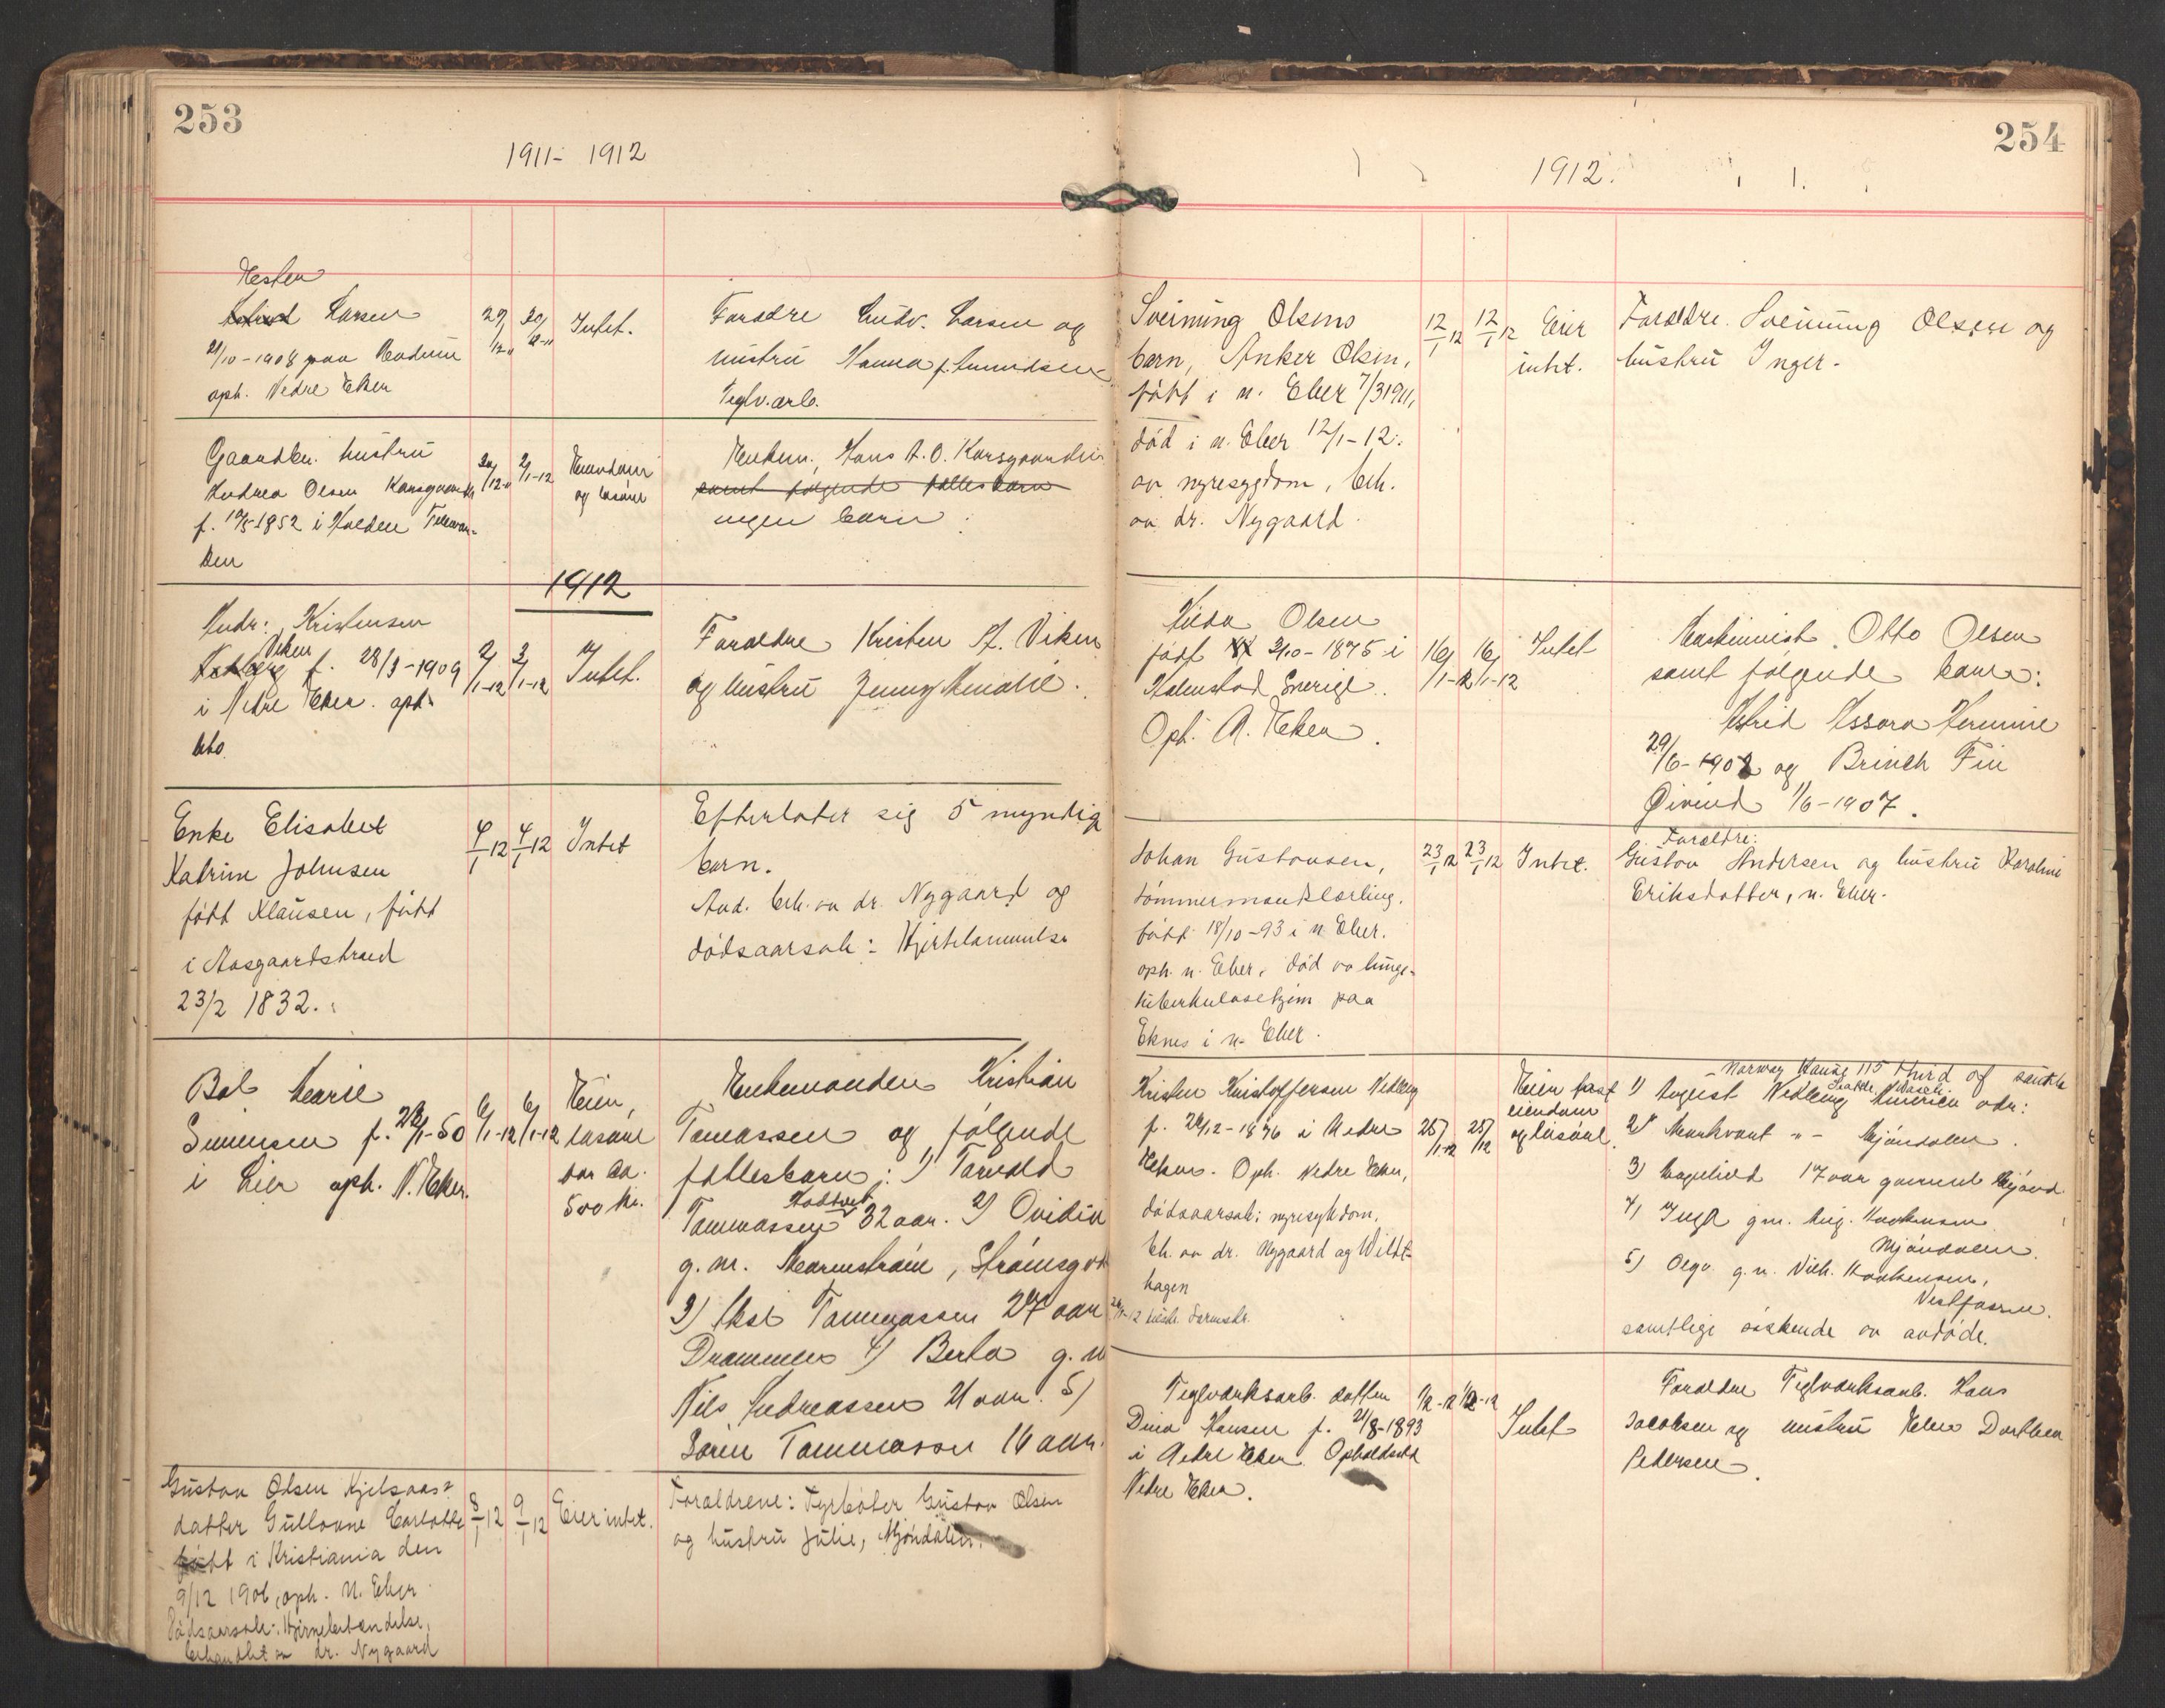 253
1911- 1912
Larsen
21/10-1908 paa Modum
oph. Nedre Eker
29/12-11
30/12-11
Intet.
Foraldre Ludv. Larsen og
hustru Hanna f. Amundsen
Teglv. arb.
Gaardbr. hustru
Andrea Olsen Korsgaarden
f. 10/5-1852 i Holden Telemar-
ken
30/12-11
2/1-12
Eiendom
og løsøre
Enkem. Hans A. O. Korsgaarden
samt følgende fællesbarn
ingen barn
1912
Andr. Kristensen
Viken
f. 28/3-1909
i Nedre Eker. oph.
2/1-12
3/1-12
Intet.
Foraldre Kristen A. Viken
og hustru Jenny Amalie.
Enke Elisabet
Katrine Johnsen
født Klausen, født
i Aasgaardstrand
23/2 1832.
4/1 12
4/1 12
Intet
Efterlater sig 5 myndig
barn.
And. beh. av dr. Nygaard og
dødsaarsak: Hjertelammelse
Bol Marie
Simensen f. 28/1-50
i Lier oph. N. Eker.
6/1-12
6/1-12
Eien,
løsøre
for ca.
500 kr.
Enkemanden Kristian
Tomassen og følgende
fællesbarn: 1) Torvald
Tommassen 32 aar. 2) Ovidia
g. m. Marenstrøm, Strømsgod
3) Aksel Tommassen 27 aar
Drammen 4) Berta g. m
Nils Andreassen 21 aar. 5)
Søren Tommasson 16 aar.
Gustav Olsen Kjelsaas
datter Gullovne Carlotte
født i Kristiania den
9/12 1906, oph. N. Eker
Dødsaarsak: Hjernebetændelse,
behandlet av dr. Nygaard
8/1 12
9/1 12
Eier intet.
Foraldrene: Fyrbøter Gustav Olsen
og hustru Julie, Mjøndalen.
254
1912.
Sveinung Olsens
barn, Anker Olsen,
født i n. Eker 7/3 1911,
død i n. Eker 12/1-12.
av nyresygdom, beh.
av dr. Nygaard.
12/1 12
12/1 12
Eier
intet.
Foraldre. Sveinung Olsen og
hustru Inger.
Hilda Olsen
født 2/10-1875 i
Halmstad Sverige.
Oph. N. Eker.
16/1-12
16/1-12
Intet
Maskinist Otto Olsen
samt følgende barn:
Astrid Assora Hermine
29/6-1902 og Brinch Fin
Øivind 1/6-1907.
Johan Gustavsen,
tømmermandslærling.
født 18/10-93 i n. Eker.
oph. n. Eker, død av lunge-
tuberkulosehjem paa
Eknes i n. Eker.
23/1 12
23/1 12
Intet.
Foraldre:
Gustav Andersen og hustru Karoline
Eriksdatter, n. Eker.
Kristen Kristoffersen Vedberg
f. 24/12-1876 i Nedre
Eker. Oph. Nedre Eker,
dødsaarsak: nyresykdom.
beh. av dr. Nygaard og Wildt-
hagen
25/1-12
25/12
Eier fast
eiendom
og løsøre.
Norway House 115 Third of south
1) August Vedberg Amerika adr:
2) Markvart " - Mjøndalen.
3) 17 aar gammel Mjønd.
4) Inga gm. Aug. Haakensen
Mjøndalen.
5) Olga g. m. Vilh. Haakensen,
Vestfossen.
samtlige søskende av avdøde.
Teglværksarb. datter
Dina Hansen f. 21/8-1893
i Nedre Eker. Opholdssted
Nedre Eker.
1/2-12
1/2-12
Intet
Foraldre Teglværksarb. Hans
Jacobsen og hustru Elen Dorthea
Pedersen.